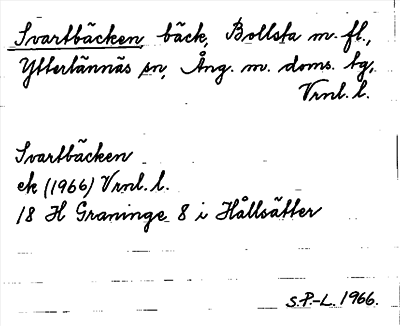 Svartbäcken, bäck, Bollsta m. fl.,
Ytterlännäs sn, Ång. m. doms. tg,
Vrnl. l.
Svartbäcken
ek (1966) Vrnl. l.
18 H Graninge 8 i Hållsätter
S.P.-L. 1966.